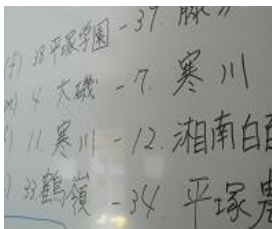 (f) 38 平塚学園 - 37.
4 大磯 - 7. 寒川
) 11 寒川 - 12. 湘南白
) 33 鶴嶺 - 34 平塚農